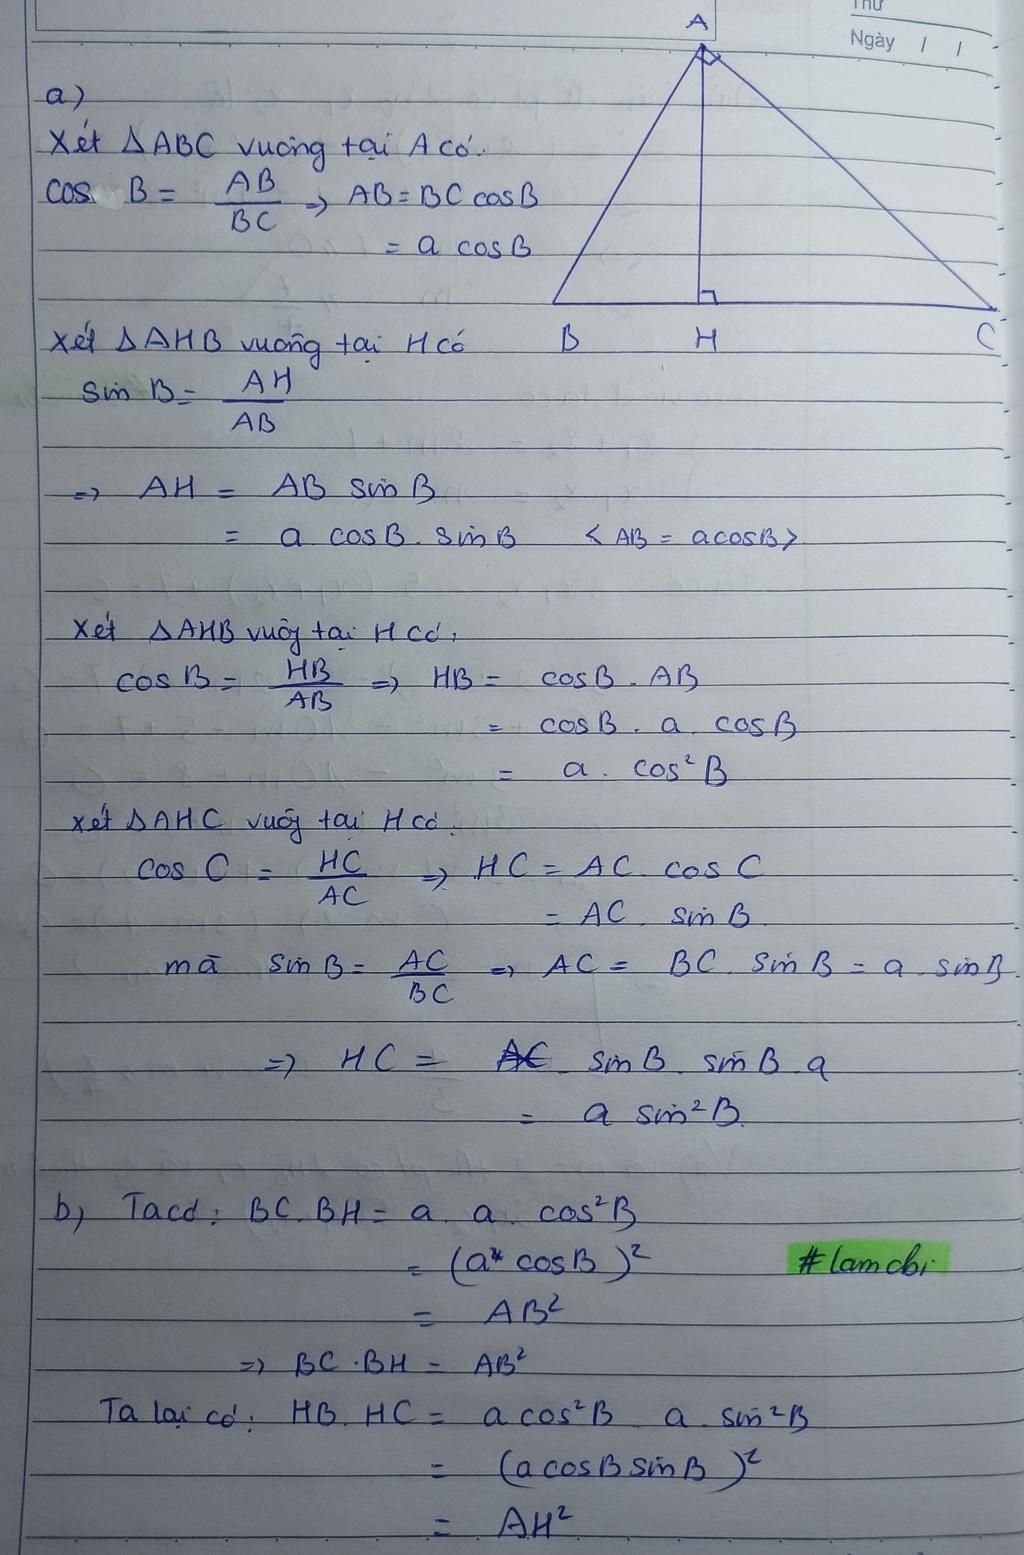 Thứ
Ngày / /
A
a)
Xét ΔABC vuông tại A có.
cos B = AB/BC => AB = BC cosB
= a cosB
B H C
Xét ΔAHB vuông tại H có
sin B = AH/AB
=> AH = AB sin B
= a cosB. sin B < AB = a cosB >
Xét ΔAHB vuông tại H có:
cos B = HB/AB => HB = cosB . AB
= cosB . a . cosB
= a . cos²B
xét ΔAHC vuông tại H có.
cos C = HC/AC => HC = AC . cos C
= AC . sin B
mà sin B = AC/BC => AC = BC . sin B = a . sin B.
=> HC = sin B . sin B . a
= a sin²B.
b) Ta có: BC.BH = a . a . cos²B
= (a cosB)²
= AB²
=> BC . BH = AB²
Ta lại có: HB. HC = a cos²B . a . sin²B
= (a cosB sinB)²
= AH²